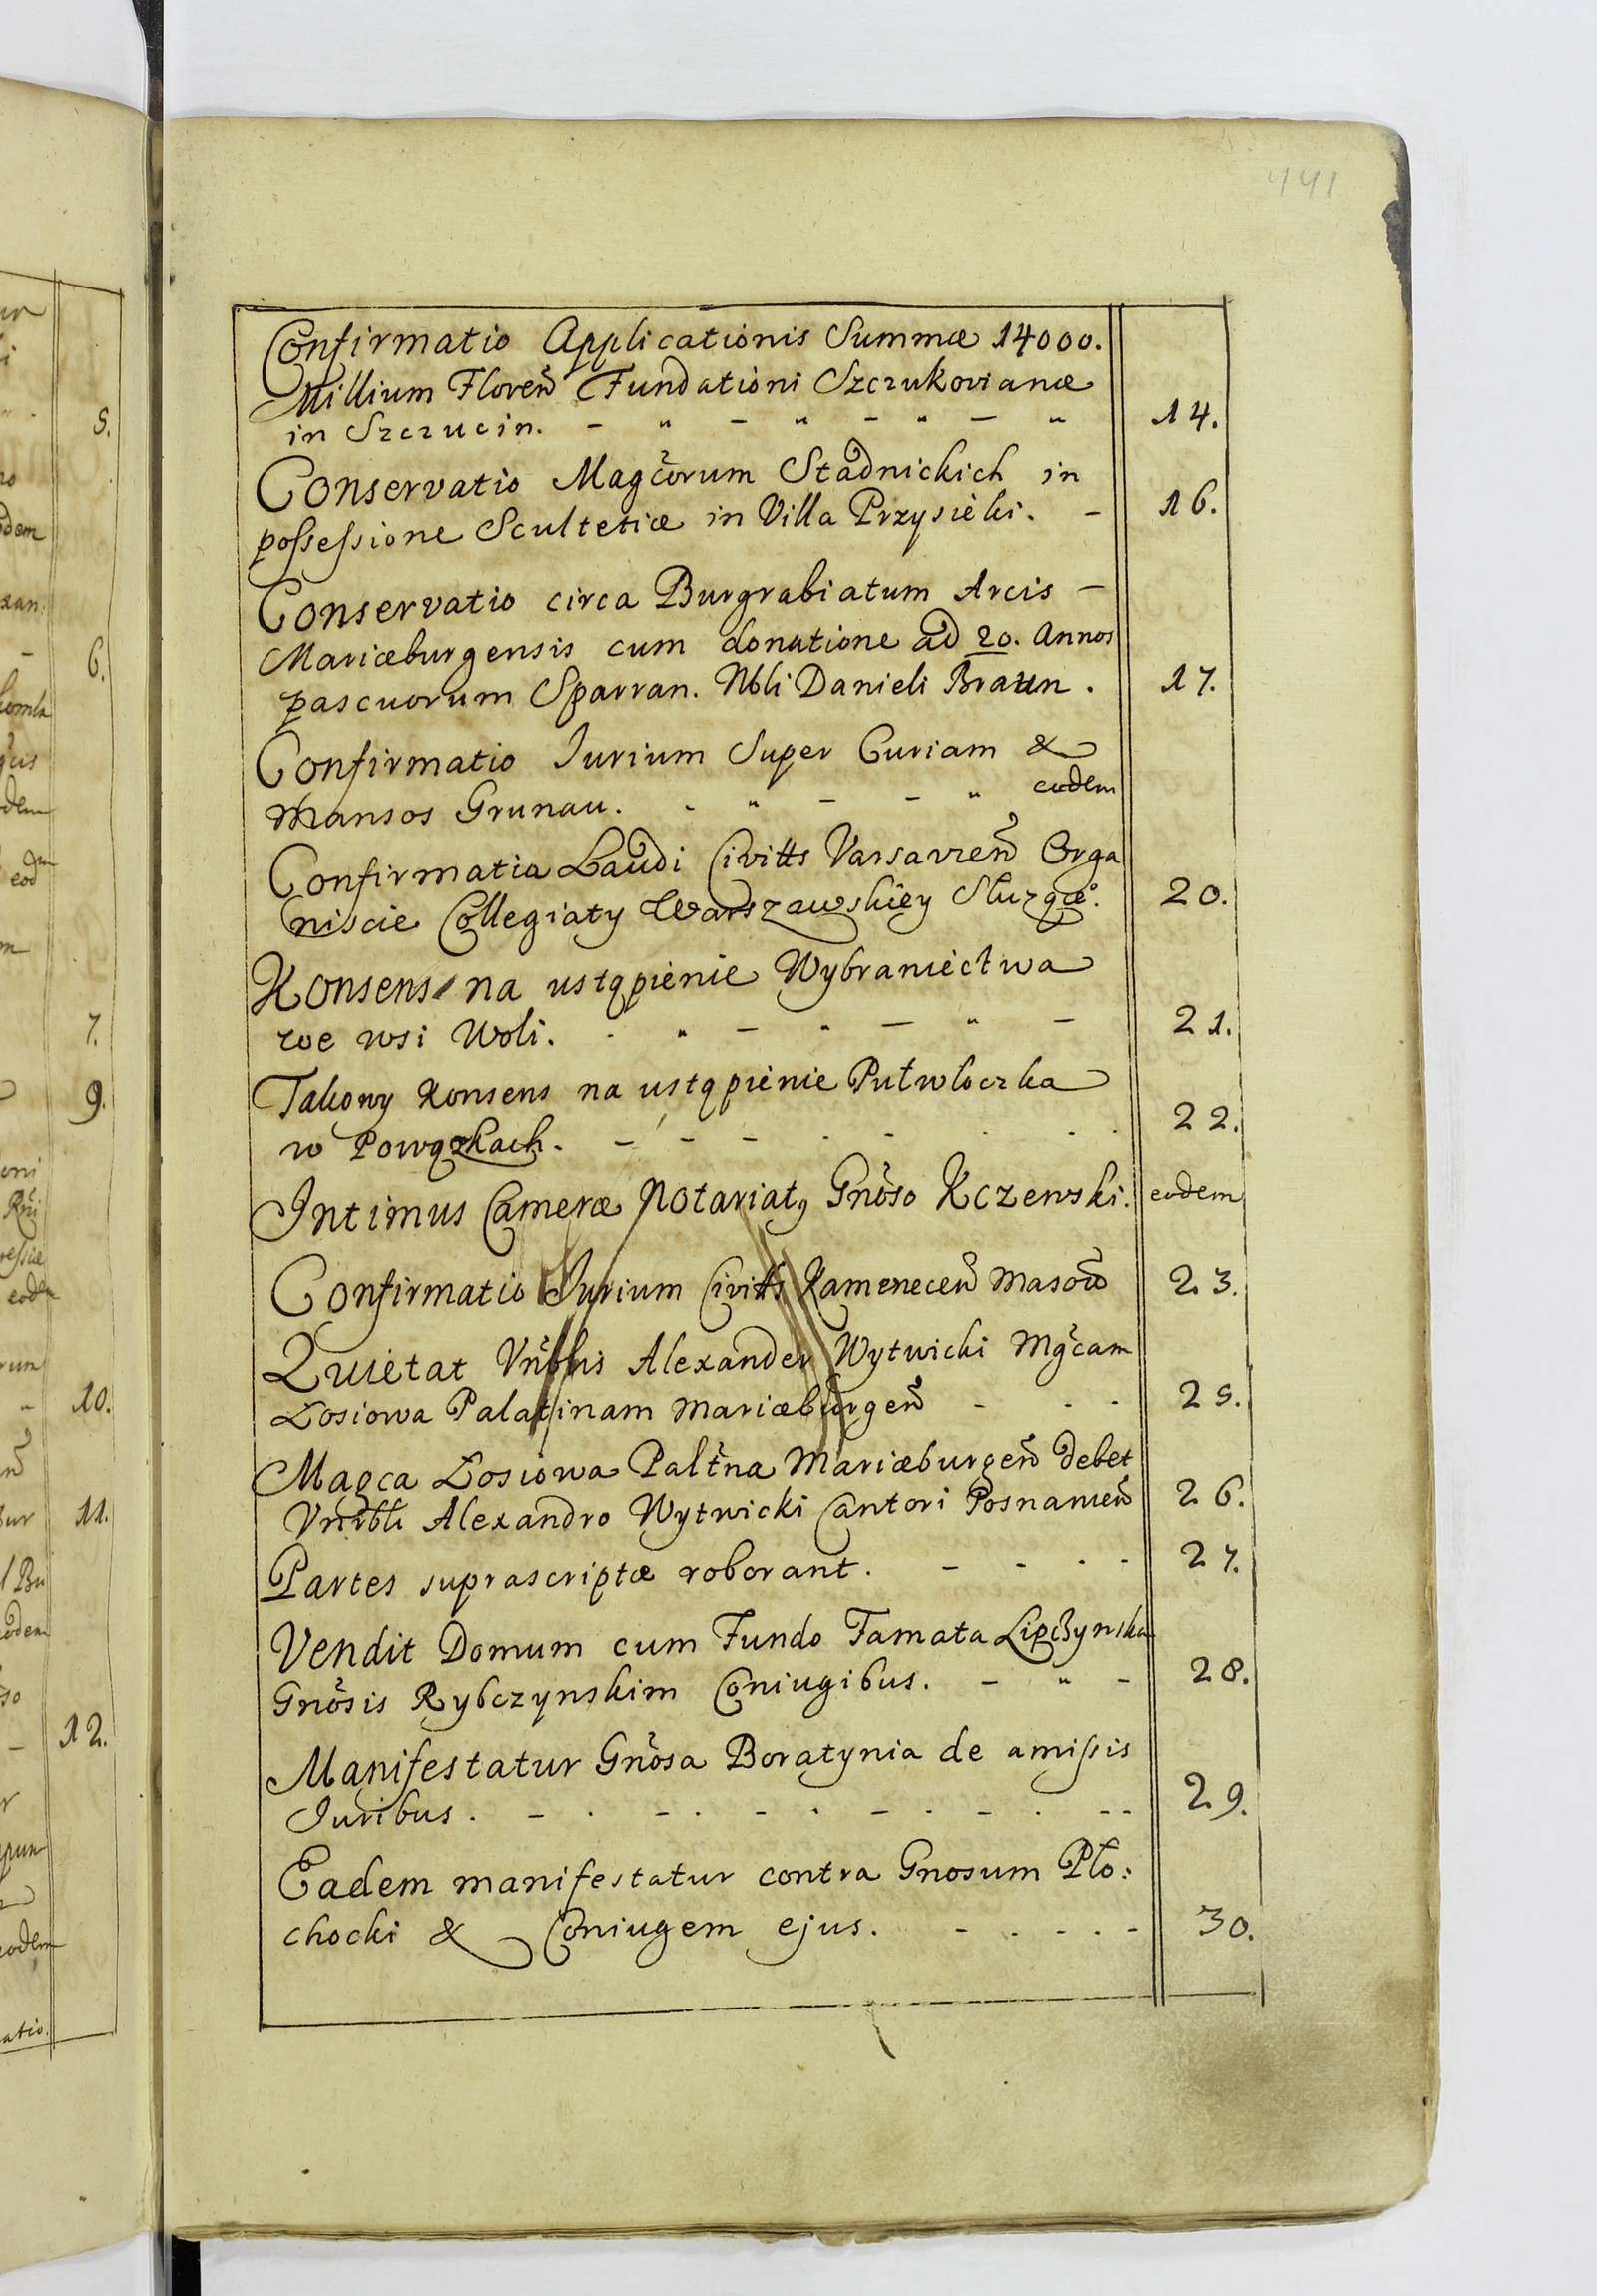 441
Confirmatio Applicationis Summæ 14000.
Millium Floreñ Fundationi Szczukovianæ
in Szczucin. - " - " - " - " 14.
Conservatio Magc̃orum Stadnickich in
possessione Scultetiæ in Villa Przysieki. - 16.
Conservatio circa Burgrabiatum Arcis -
Mariæburgensis cum donatione ad 20. Annos
pascuorum Sparran. Nbli Danieli Braun. 17.
Confirmatio Jurium Super Curiam &
Mansos Grunau. - " - - " eodem
Confirmatia Laudi Civitts Varsavień Orga
niscie Collegiaty Warszawskiey Służące. 20.
Konsens na ustąpienie Wybraniectwa
we wsi Woli. - " - " - " - 21.
Takowy Konsens na ustąpienie Pułwłoczka
w Powązkach. - - - . - . . . 22.
Intimus Cameræ Notariatq Gnõso Kczewski. eodem
Confirmatio Jurium Civitts Kameneceñ Masow̃ 23.
Quietat Vñblis Alexander Wytwicki Mgc̃am
Łosiowa Palatinam Mariæburgeñ - . . 25.
Magca Łosiowa Palt̃na Mariæburgeñ debet
Vnrbli Alexandro Wytwicki Cantori Posnanieñ 26.
Partes suprascriptæ roborant. - - . . 27.
Vendit Domum cum Fundo Famata Lipczynska
Gnõsis Rybczynskim Coniugibus. - " - 28.
Manifestatur Gnõsa Boratynia de amissis
Juribus. - . - . - . - . - . -- 29.
Eadem manifestatur contra Gnosum Pło:
chocki & Coniugem ejus. - . - . - 30.
5.
6.
7.
9.
10.
11.
12.